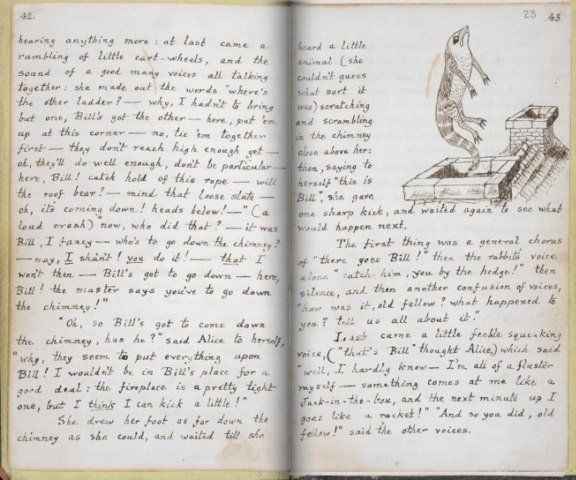 42.
hearing anything more: at last came a
rumbling of little cart-wheels, and the
sound of a good many voices all talking
together: she made out the words "where's
the other ladder? — why, I hadn't to bring
but one, Bill's got the other — here, put 'em
up at this corner — no, tie 'em together
first — they don't reach high enough yet —
oh, they'll do well enough, don't be particular —
here, Bill! catch hold of this rope — will
the roof bear? — mind that loose slate —
oh, it's coming down! heads below! —" (a
loud crash) "now, who did that? — it was
Bill, I fancy — who's to go down the chimney?
— nay, I shan't! you do it! — that I
won't then — Bill's got to go down — here,
Bill! the master says you've to go down
the chimney!"
"Oh, so Bill's got to come down
the chimney, has he?" said Alice to herself,
"why, they seem to put everything upon
Bill! I wouldn't be in Bill's place for a
good deal: the fireplace is a pretty tight
one, but I think I can kick a little!"
She drew her foot as far down the
chimney as she could, and waited till she
23
43.
heard a little
animal (she
couldn't guess
what sort it
was) scratching
and scrambling
in the chimney
close above her:
then, saying to
herself "this is
Bill", she gave
one sharp kick, and waited again to see what
would happen next.
The first thing was a general chorus
of "there goes Bill!" then the rabbit's voice
alone "catch him, you by the hedge!" then
silence, and then another confusion of voices,
"how was it, old fellow? what happened to
you? tell us all about it."
Last came a little feeble squeaking
voice, ("that's Bill" thought Alice,) which said
"well, I hardly know — I'm all of a fluster
myself — something comes at me like a
Jack-in-the-box, and the next minute up I
goes like a rocket!" "And so you did, old
fellow!" said the other voices.